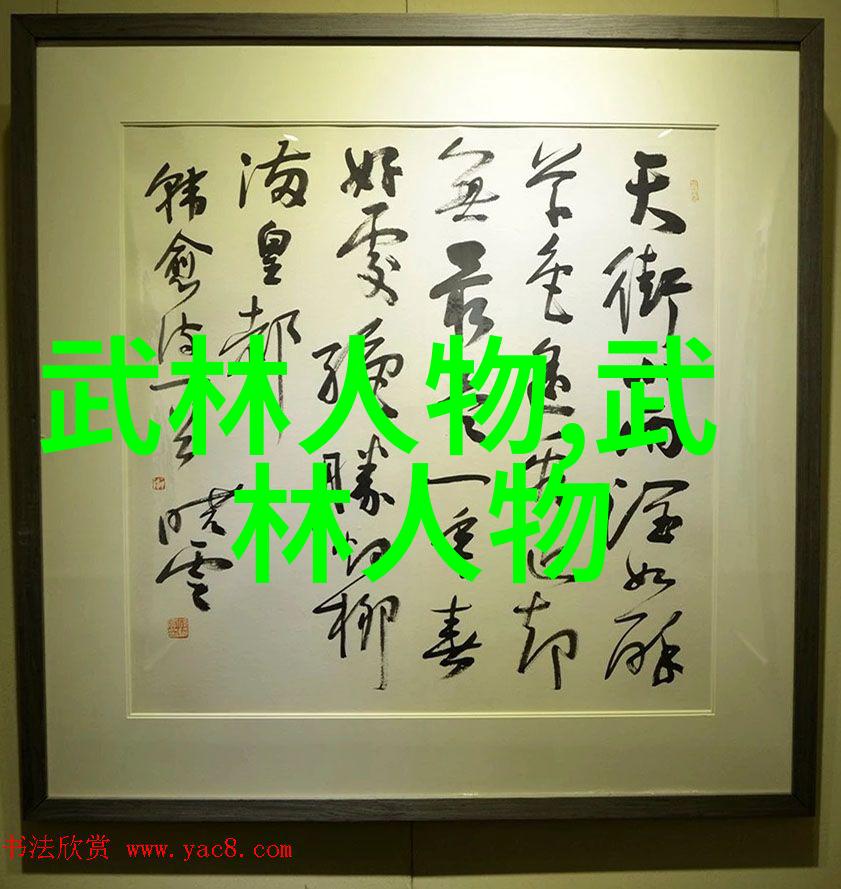 天街小雨潤如酥
草色遥看近却
無最是一年春
好處絕勝烟柳
滿皇都
韓愈诗一首 曉雲
武林人物,武
林人物
书法欣赏 www.yac8.com